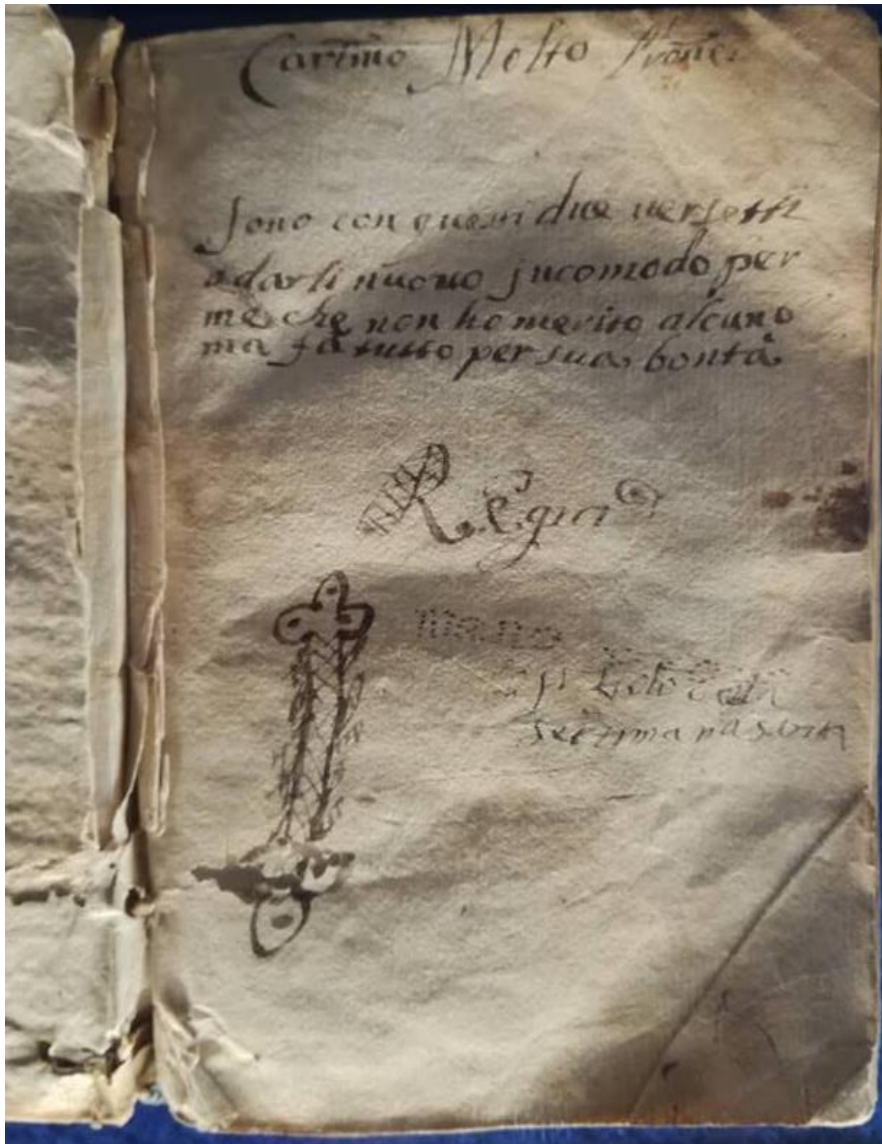 Carimo Molto
Sono con questi due uersetti
a darli nuouo jncomodo per
me che non ho merito alcuno
ma fa tutto per sua bontà
mano
Settima na santa